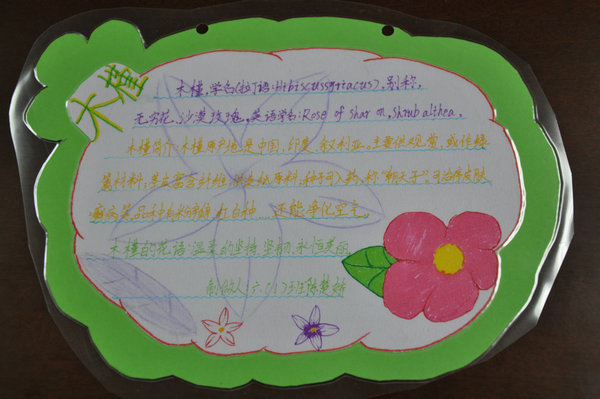 木槿
木槿,学名(拉丁语:Hibiscussyriacus),别称,
无穷花.沙漠玫瑰,英语学名:Rose of Sharon,Shrub althea,
木槿简介:木槿原产地是中国,印度,叙利亚.主要供观赏,或作绿
篱材料;茎皮富含纤维,供造纸原料,种子可入药,称"朝天子".可治疗皮肤
癣病
还能净化空气。
木槿的花语:温柔的坚持,坚韧,永恒美丽
制做人:六(1)班陈楚